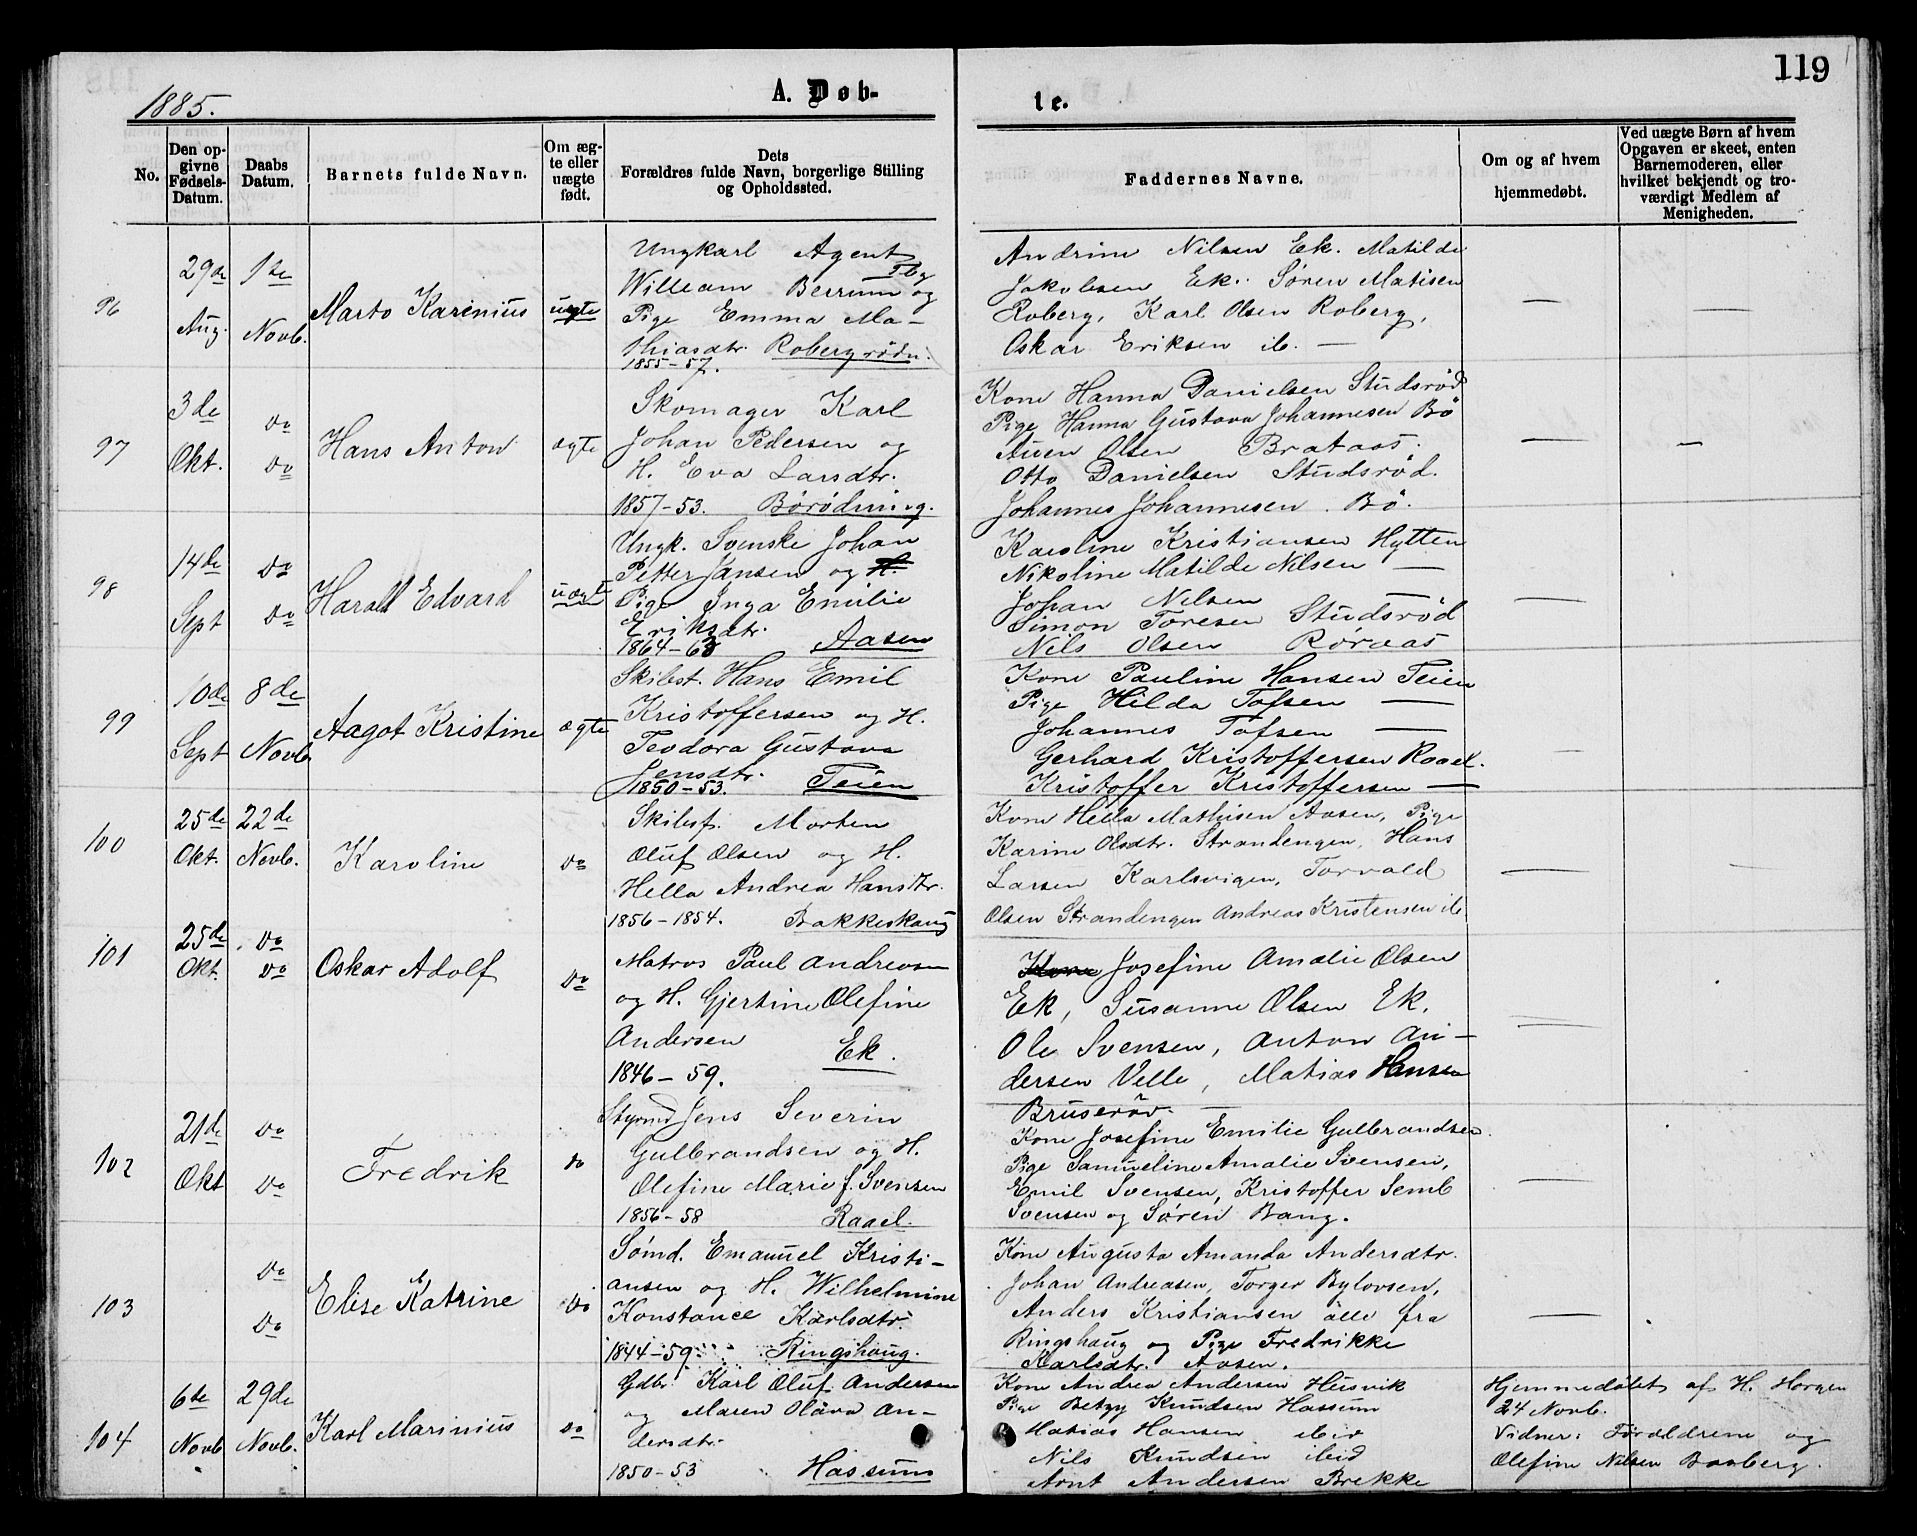 119
1885.
A. Døb-
te.
No.
Den op-
givne
Fødsels-
Datum.
Daabs
Datum.
Barnets fulde Navn.
Om æg-
te eller
uægte
født.
Dets
Forældres fulde Navn, borgerlige Stilling
og Opholdssted.
Faddernes Navne.
Om og af hvem
hjemmedøbt.
Ved uægte Børn af hvem
Opgaven er skeet, enten
Barnemoderen, eller
hvilket bekjendt og tro-
værdigt Medlem af
Menigheden.
96
29de
Aug.
1ste
Novb.
Marto Karinius
uægte
Ungkarl Agent
Tbg
William Berrum og
Pige Emma Ma-
thiasdtr. Robergrødn.
1855-57.
Andrine Nilsen Ek. Matilde
Jakobsen Ek. Søren Matisen
Roberg, Karl Olsen Roberg,
Oskar Eriksen ib. —
97
3de
Okt.
do
do
Hans Anton
ægte
Skomager Karl
Johan Pedersen og
H. Eva Larsdtr.
1857-53. Børødning.
Kone Hanna Danielsen Studsrød
Pige Hanna Gustava Johannesen Bø
Auen Olsen Brataas.
Otto Danielsen Studsrød.
Johannes Johannesen. Bø.
98
14de
Sept
do
do
Harald Edvard
uægte
Ungk. Svenske Johan
Petter Jansen og H.
Pige Inga Emilie
Eriksdtr.
1864-63 Aasen
Karoline Kristiansen Hytten
Nikoline Matilde Nilsen —
Johan Nilsen —
Simon Toresen Studsrød
Nils Olsen Røraas
99
10de
Sept
8de
Novb.
Aagot Kristine
ægte
Skibst. Hans Emil
Kristoffersen og H.
Teodora Gustava
Jensdtr.
1850-53. Teien
Kone Pauline Hansen Teien
Pige Hilda Tofsen —
Johannes Tofsen —
Gerhard Kristoffersen Raael.
Kristoffer Kristoffersen —
100
25de
Okt.
22de
Novb.
Karoline
do
Skibst. Morten
Oluf Olsen og H.
Hella Andrea Hansdtr.
1856-1854. Bakkeskaug
Kone Hella Mathisen Aasen, Pige
Karine Olsdtr. Strandengen, Hans
Larsen Karlsvigen, Torvald
Olsen Strandengen Andreas Kristensen ib
101
25de
Okt.
do
do
Oskar Adolf
do
Matros Paul Andreasen
og H. Gjertine Olefine
Andersen Ek.
1846-59.
Kone Josefine Amalie Olsen
Ek, Susanne Olsen Ek.
Ole Svensen, Anton An-
dersen Velle, Matias Hansen
Bruserød. —
102
21de
Okt
do
do
Fredrik
do
Styrmd Jens Severin
Gulbrandsen og H.
Olefine Marie f. Svensen
1856-58 Raael.
Kone Josefine Emilie Gulbrandsen.
Pige Samueline Amalie Svensen,
Emil Svensen, Kristoffer Semb
Svensen og Søren Bang.
103
do
do
Elise Katrine
do
Sømd. Emanuel Kristi-
ansen og H. Wilhelmine
Konstance Karlsdtr.
1844-59. Ringshaug.
Kone Augusta Amanda Andersdtr.
Johan Andreasen, Torger Bylovsen,
Anders Kristiansen alle fra
Ringshaug og Pige Fredrikke
Karlsdtr. Aasen.
104
6te
Novb
29de
Novb.
Karl Marinius
do
Gdbr. Karl Oluf Andersen
og Maren Olava An-
dersdtr.
1850-53 Hassum
Kone Andrea Andersen Husvik
Pige Betzy Knudsen Hassum
Matias Hansen ibid
Nils Knudsen ibid
Arnt Andersen Brekke
Hjemmedøbt af H. Horgen
24 Novb.
Vidner: Forældrene og
Olefine Nilsen Basberg.